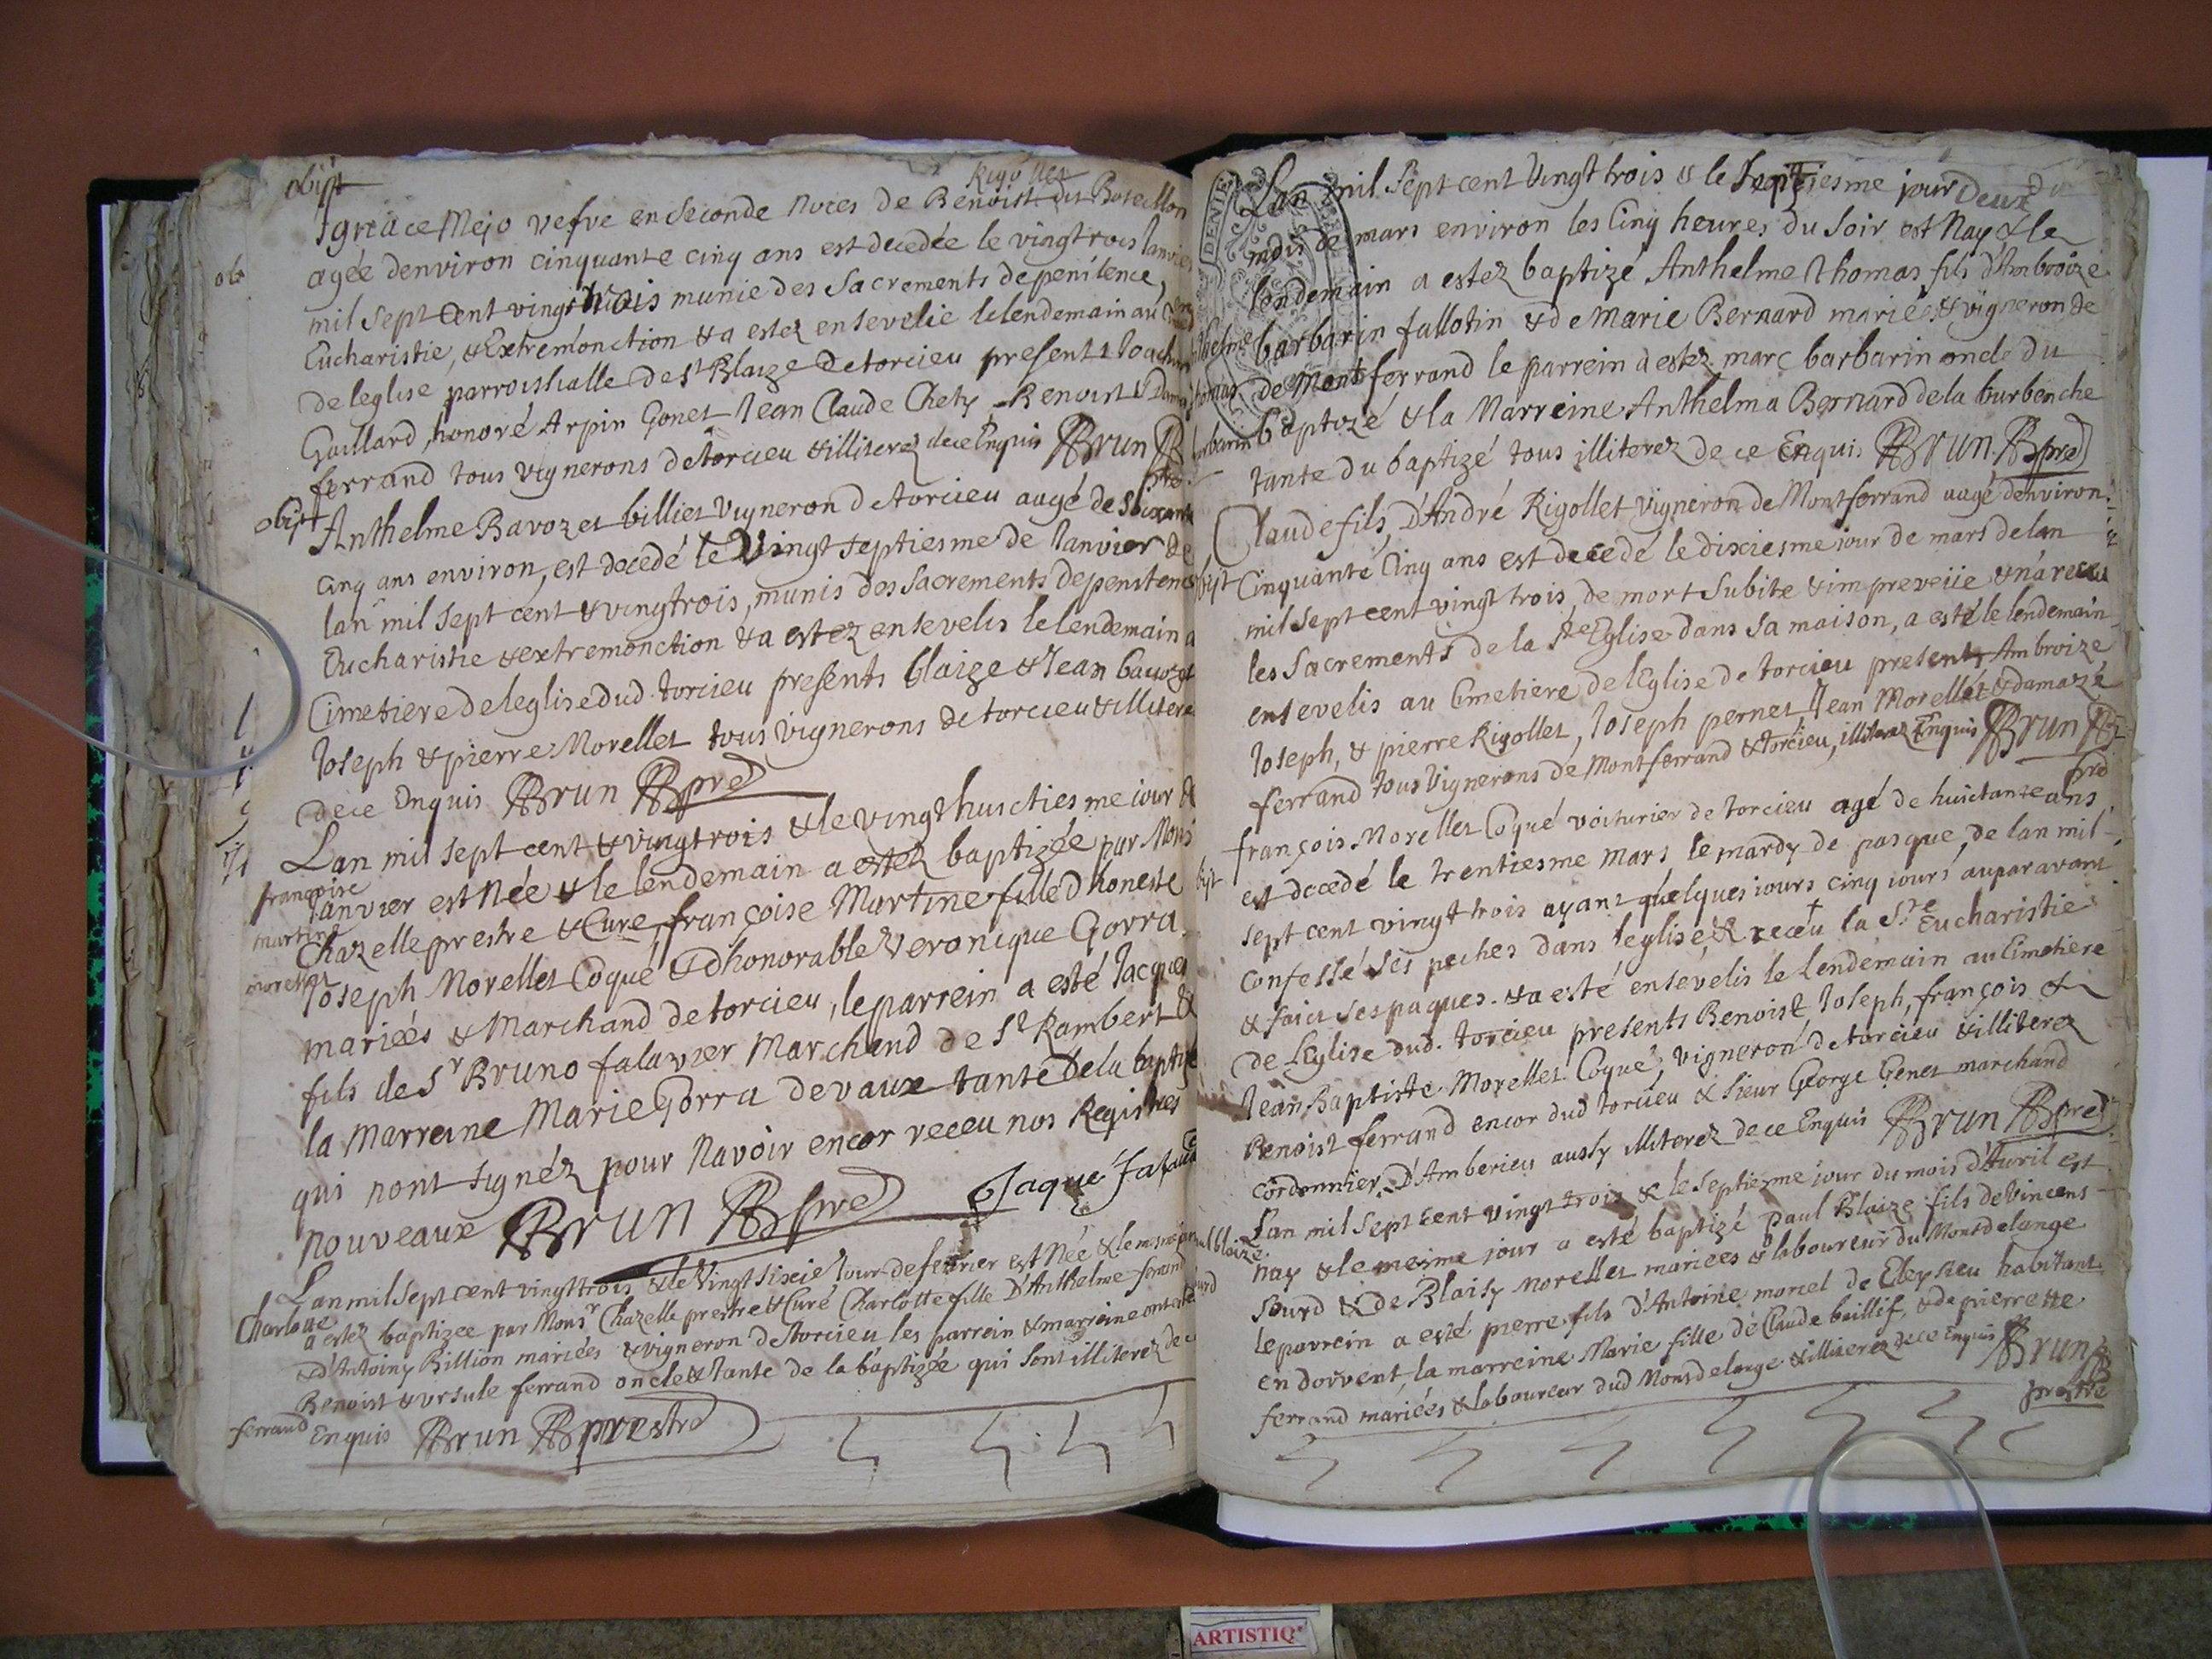 obijt
Rigollet
Ignace Mejo vefve en seconde noces de Benoist dit Boteillon
agée denviron cinquante cinq ans est decedée le vingtrois Janvier
mil sept cent vingt trois munie des Sacrements de penitence,
Eucharistie, & Extremonction & a estez ensevelie le lendemain au
de leglise parroishialle de St Blaize de torcieu presents Joachim
Gaillard, honoré Arpin Gonet Jean Claude Chety Benoist &
ferrand tous vignerons de torcieu & illiterez de ce Enquis BBrun B
pre
obijt
Anthelme Bavozet billiet vigneron de torcieu aagé de soixante
cinq ans environ, est decedé le Vingt septiesme de Janvier de
lan mil sept cent & vingtrois, munis des Sacrements de penitence
Eucharistie & extremonction & a estez ensevelis le lendemain a
Cimetiere de leglise dud. torcieu presents blaize & Jean bavozet
Joseph & pierre Morellet tous vignerons de torcieu & illitere
de ce Enquis BBrun BBpre
Lan mil sept cent & vingtrois & le vingt huictiesme iour de
Janvier est Née & le lendemain a estez baptizée par Mons
francoise
martine
morellet
Chazelle prestre & Cure françoise Martine fille dhoneste
Joseph Morellet Coqué & dhonorable Veronique Gorra
mariées & Marchand de torcieu, le parrein a esté Jacques
fils de Sr Bruno falavier Marchand de St Rambert &
la marreine Marie Gorra de vaux tante de la baptize
qui nont signéz pour Navoir encor receu nos Registres
nouveaux BBrun BBpre Jaque fala
Lan mil sept cent vingt trois & le Vingt sixie Jour de fevrier est Née & le mesme jour
Charlotte
a estez baptizee par Monsr Chazelle prestre & Curé Charlotte fille D'Anthelme ferrand
& d'Antoiny Billion mariées & vigneron de torcieu les parrein & marreine ont esté
Benoist & Ursule ferrand oncle & tante de la baptizée qui sont illiterez de ce
ferrand
Enquis BBrun BBprestre
Lan mil Sept cent Vingt trois & le septiesme jour Deux du
mois de mars environ les Cinq heures du soir est Nay & le
lendemain a estez baptizé Anthelme Thomas fils d'Ambroize
barbarin fallotin & de Marie Bernard mariées & vigneron de
de Montferrand le parrein a estez marc barbarin oncle du
baptizé & la Marreine Anthelma Bernard de la burbanche
tante du baptizé tous illiterez de ce Enquis BBrun BBpre
Claude fils, D'André Rigollet vigneron de Montferrand aagé denviron
Cinquante Cinq ans est decedé le dixiesme iour de mars de lan
mil sept cent vingt trois, de mort subite & impreveüe & n'a receu
les Sacrements de la Ste Eglise dans sa maison, a esté le lendemain
ensevelis au Cimetiere de l'Eglise de torcieu presents Ambroize
Joseph, & pierre Rigollet, Joseph pernet Jean Morellet & damazé
ferrand tous Vignerons de Montferrand & torcieu, illiterez Enquis BBrun BB
pre
françois Morellet Coqué voiturier de torcieu agé de huictante ans
est decedé le trentiesme Mars le mardy de pasque, de lan mil
sept cent vingt trois ayant quelques iours cinq iours auparavant
confessé ses peches dans leglise, & receu la Ste Eucharistie
& faict ses paques. & a esté ensevelis le lendemain au Cimetiere
de l'Eglise dud. torcieu presents Benoist, Joseph, françois &
Jean Baptiste Morellet Coqué, vigneron de torcieu & illiterez
Benoist ferrand encor dud torcieu & sieur George Genet marchand
cordonnier, D'Amberieu aussy illiterez de ce Enquis BBrun BBpre
Lan mil sept cent vingt trois & le septiesme iour du mois d'Avril est
nay & le mesme jour a esté baptizé Paul Blaize fils de Vincens
Sourd & de Blaisy Morellet mariees & laboureur du Montdelange
le parrein a esté pierre fils d'Antoine morcel de Cleysieu habitant
en dorvent, la marreine Marie fille de Claude baillif, & de pierrette
ferrand mariées & laboureur dud Montdelange & illiterez de ce Enquis BBrun B
prestre
ARTISTIQ